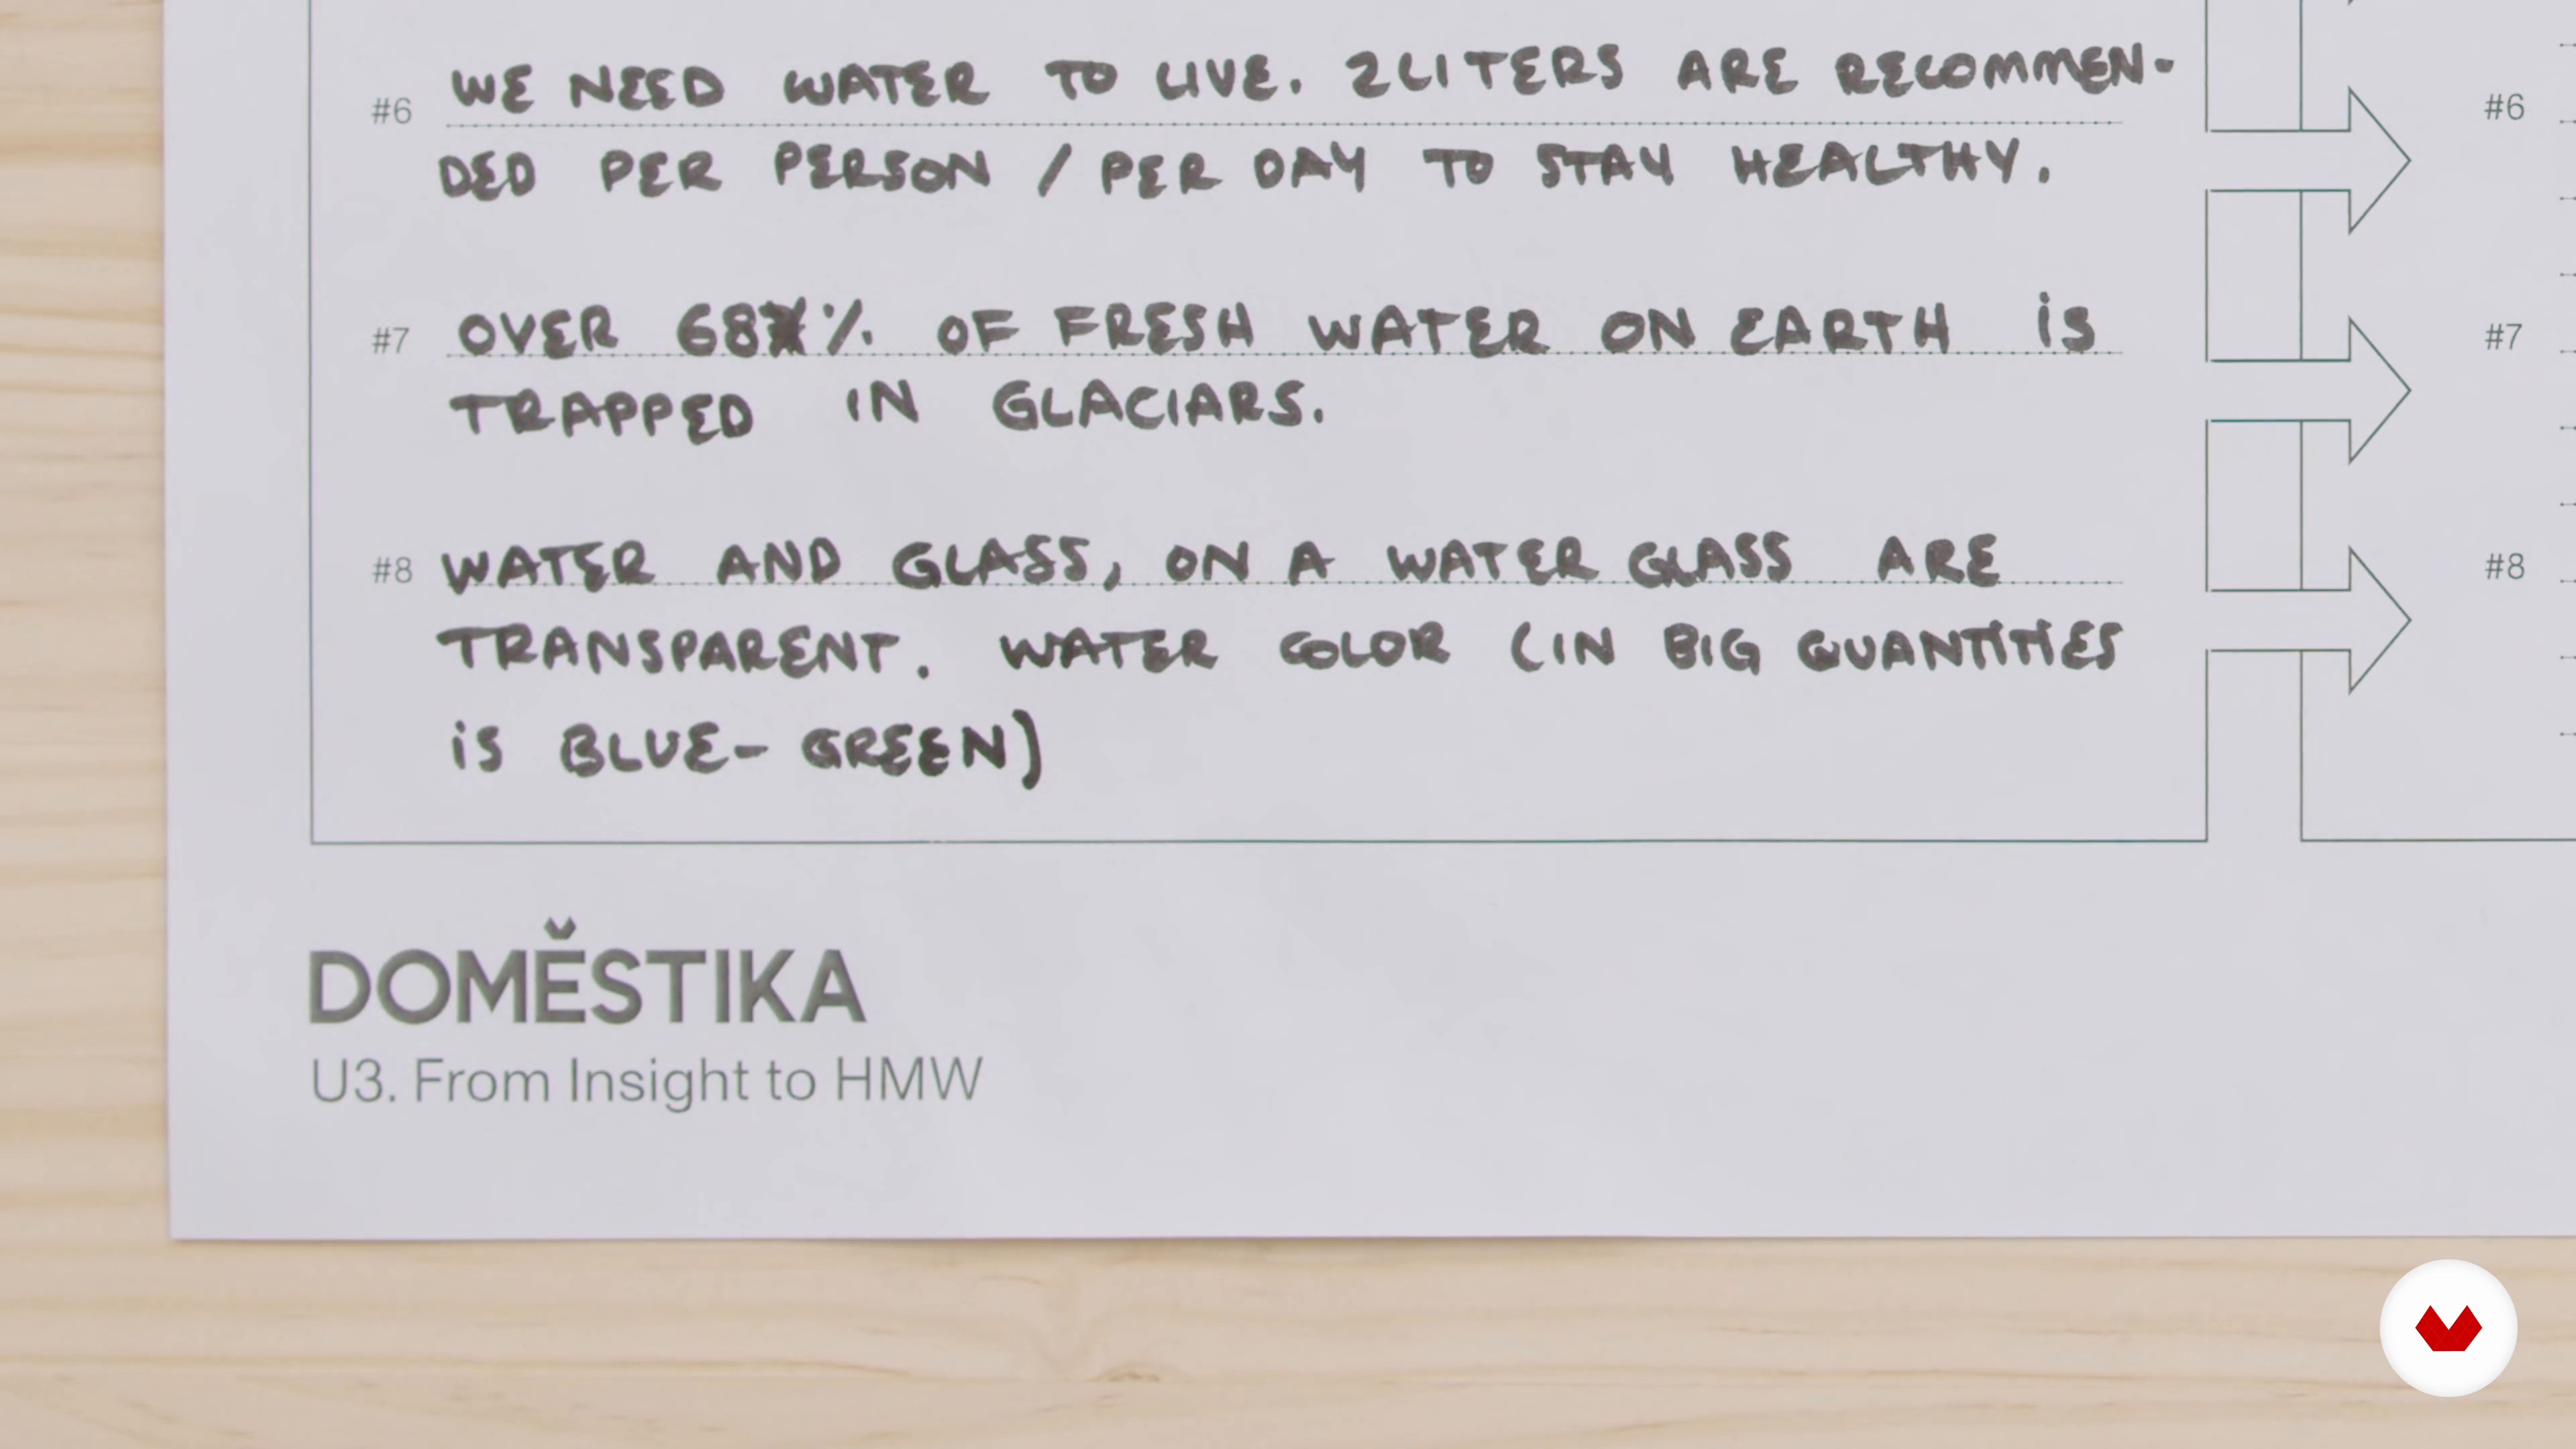 #6 WE NEED WATER TO LIVE. 2LITERS ARE RECOMMEN-
DED PER PERSON / PER DAY TO STAY HEALTHY.
#7 OVER 68% OF FRESH WATER ON EARTH iS
TRAPPED IN GLACIARS.
#8 WATER AND GLASS, ON A WATER GLASS ARE
TRANSPARENT. WATER COLOR (IN BIG QUANTITIES
iS BLUE-GREEN)
#6
#7
#8
DOMĔSTIKA
U3. From Insight to HMW